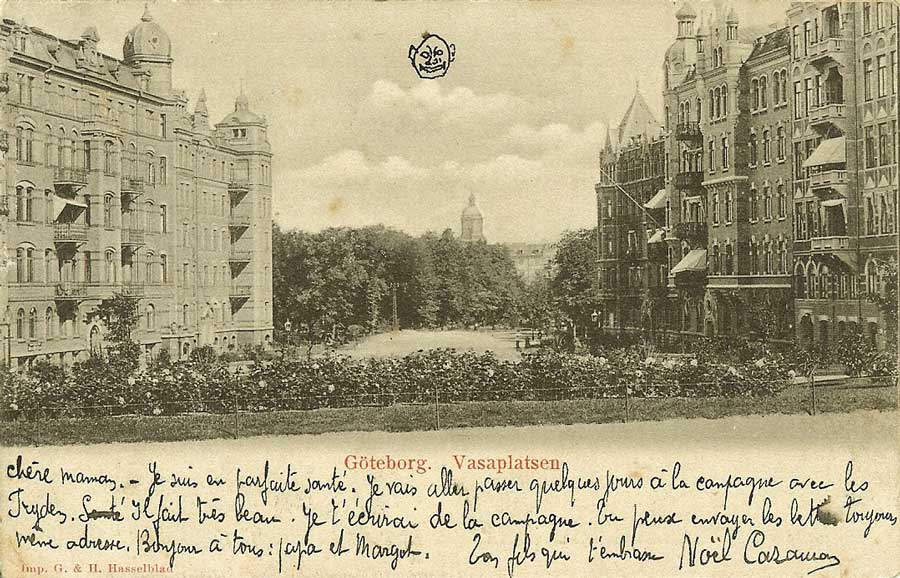 Göteborg. Vasaplatsen
chère maman. - Je suis en parfaite santé. Je vais aller passer quelques jours à la campagne avec les
Il fait très beau. Je t'écrirai de la campagne. Tu peux envoyer les lettres toujours
même adresse. Bonjour à tous : papa et Margot. Ton fils qui t'embrasse Noël
Imp. G. & H. Hasselblad